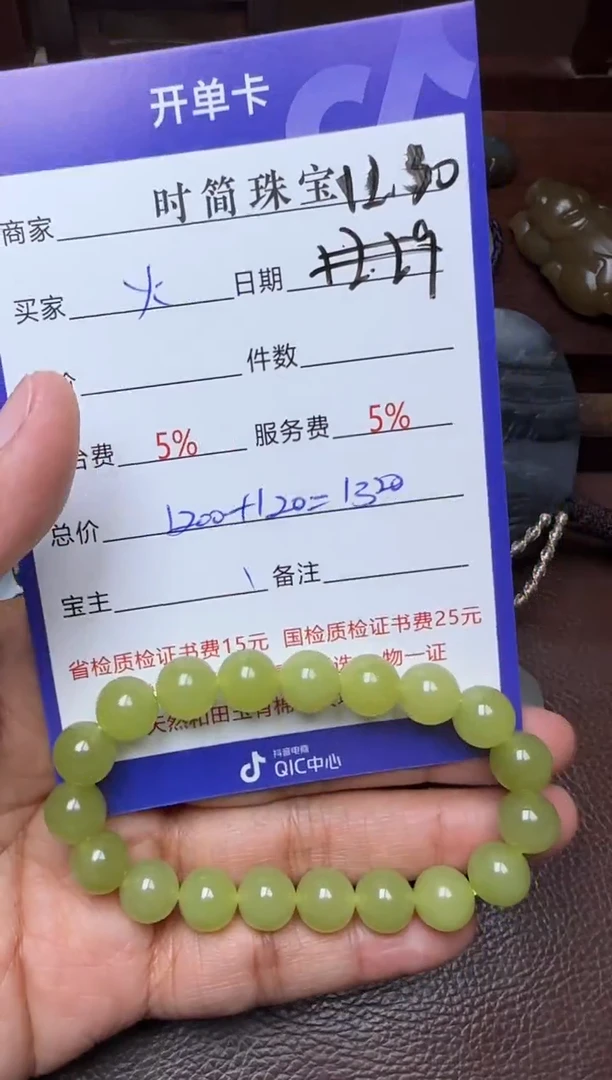 开单卡
商家 时简珠宝 12.30
买家 火 日期 12.29
件数
费 5% 服务费 5%
总价 1200+120=1320
宝主 备注
省检质检证书费15元 国检质检证书费25元
物一证
天然和田玉有棉
抖音电商
QIC中心